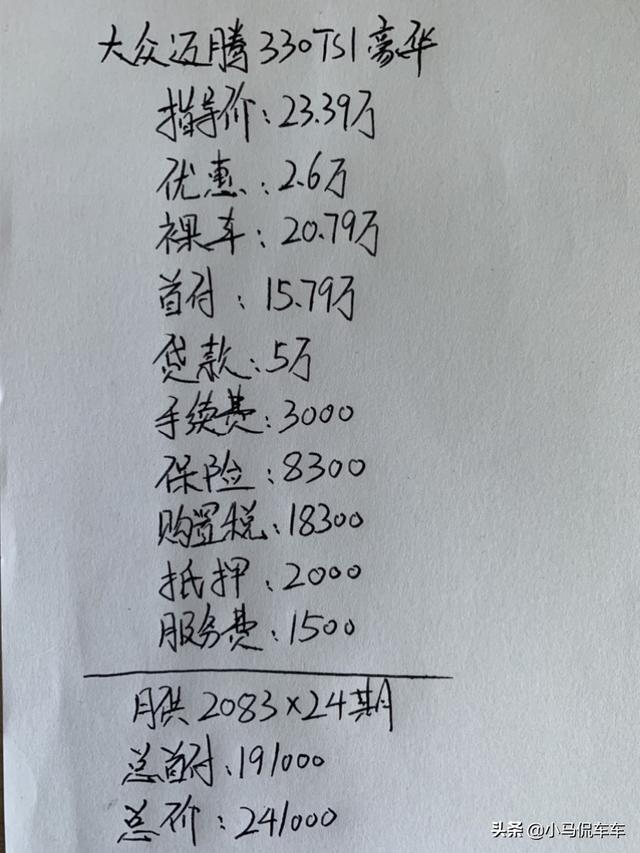 大众迈腾330TSI豪华
指导价:23.39万
优惠:2.6万
裸车:20.79万
首付:15.79万
贷款:5万
手续费:3000
保险:8300
购置税:18300
抵押:2000
服务费:1500
月供2083×24期
总首付:191000
总价:241000
头条 @小马侃车车